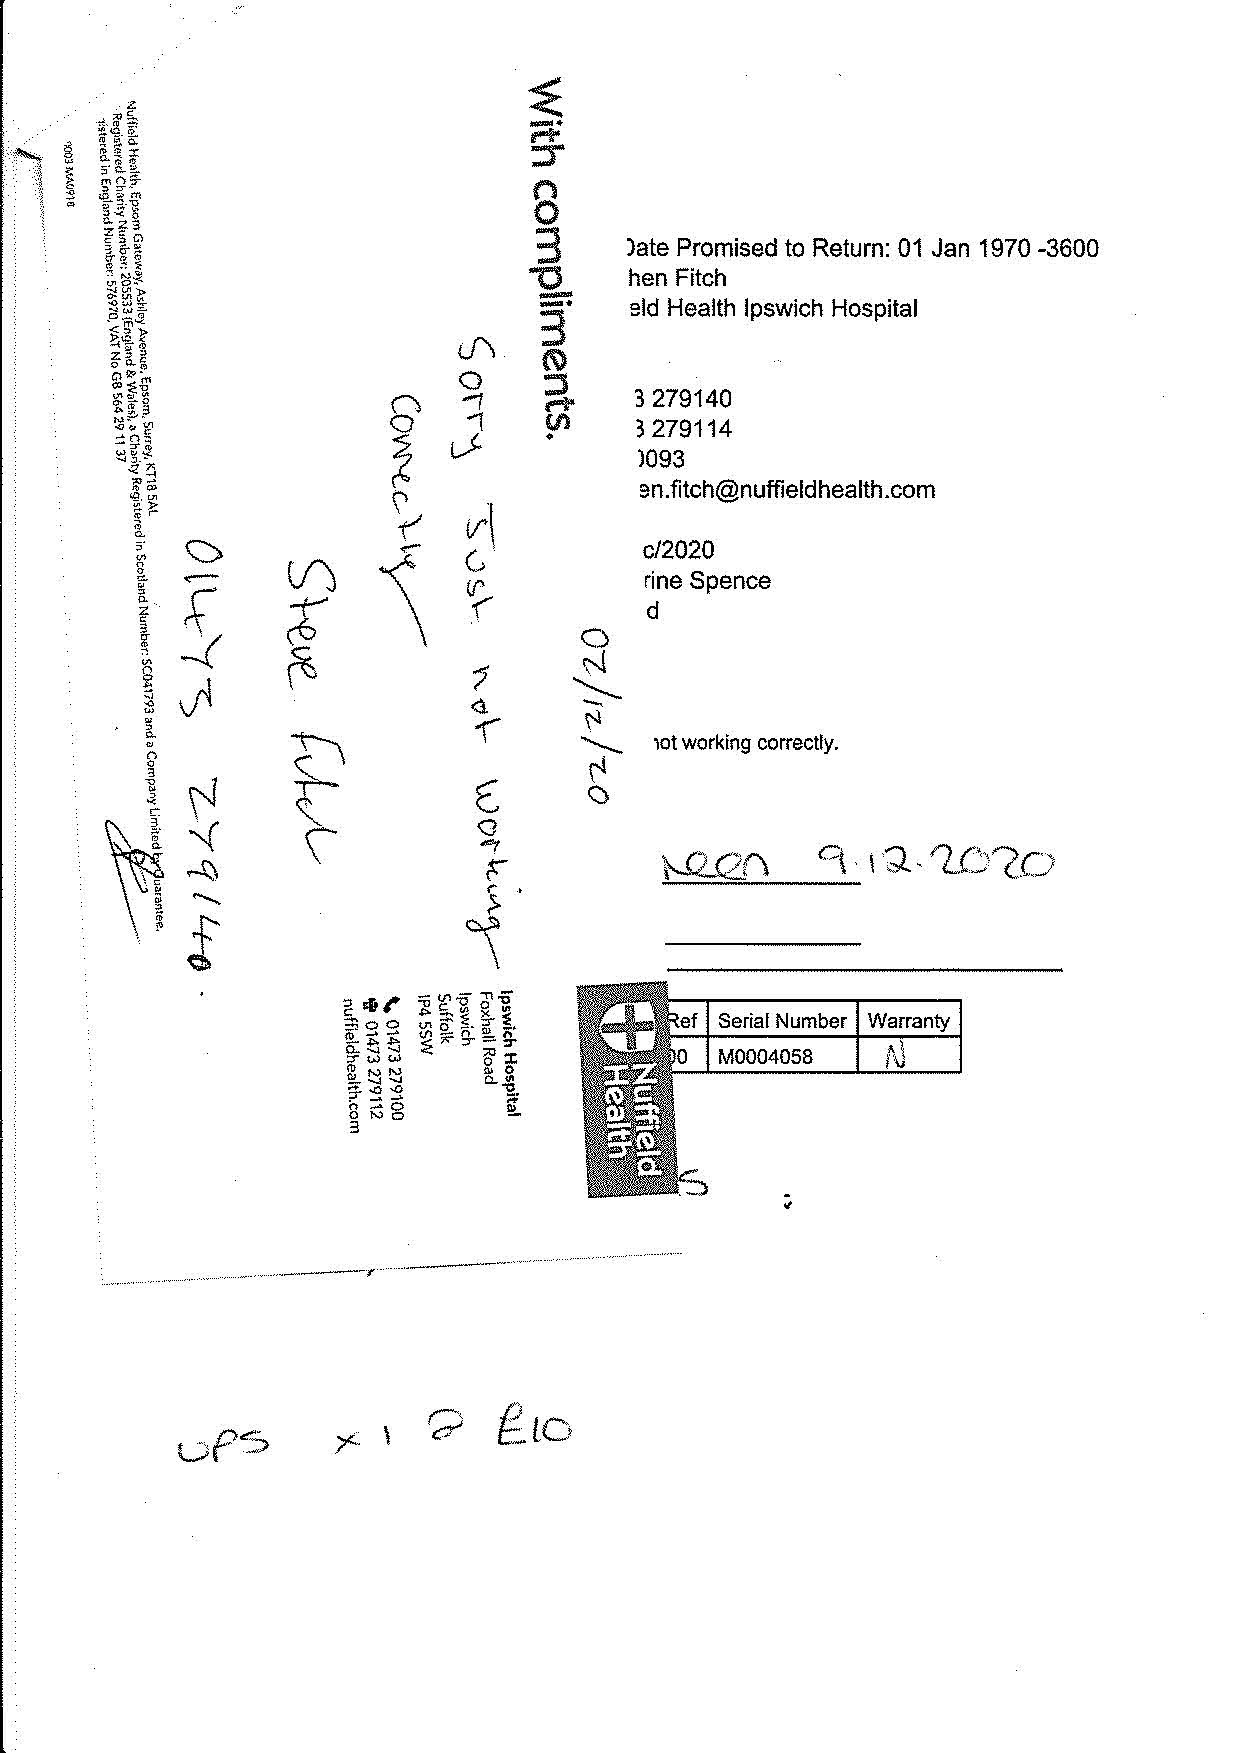 Date Promised to Return: 01 Jan 1970 -3600
hen Fitch
eld Health Ipswich Hospital
3 279140
3 279114
0093
en.fitch@nuffieldhealth.com
c/2020
rine Spence
d
not working correctly.
9.12.2020
Ref Serial Number Warranty
00 M0004058 N
With compliments.
02/12/20
Sorry Just not working
correctly
Steve Fitch
01473 279140.
Ipswich Hospital
Foxhall Road
Ipswich
Suffolk
IP4 5SW
01473 279100
01473 279112
nuffieldhealth.com
Nuffield
Health
Nuffield Health, Epsom Gateway, Ashley Avenue, Epsom, Surrey, KT18 5AL
Registered Charity Number: 205533 (England & Wales), a Charity Registered in Scotland Number: SC041793 and a Company Limited by Guarantee.
istered in England Number: 576970, VAT No GB 564 29 11 37
9003 MA0918
UPS x 1 @ £10